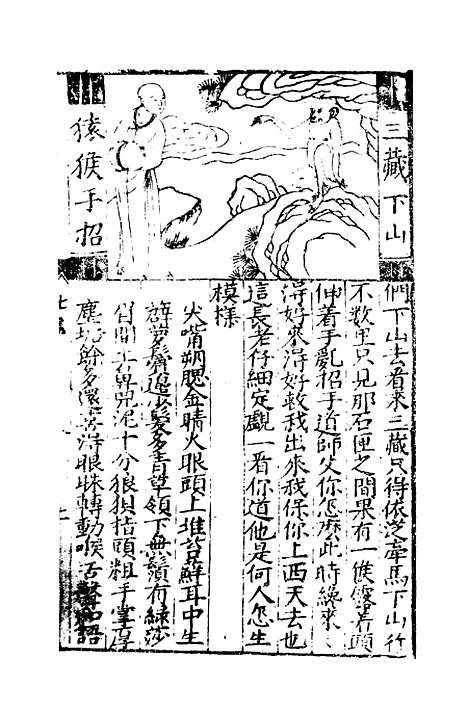 三藏下山
猿猴手招
們下山去看來三藏只得依從牽馬下山行
不数里只見那石匣之間果有一猴露着頭
伸着手亂招手道師父你怎麽此時纔來、
得好來得好救我出來我保你上西天去也
這長老仔細定觀一看你道他是何人怎生
模樣
尖嘴朔腮金睛火眼頭上堆苔蘚耳中生
薜蘿鬢邊少髮多青草頷下無鬚有綠莎
眉間土鼻凹泥十分狼狽指頭粗手掌厚
塵垢餘多還喜得眼珠轉動喉舌聲和語